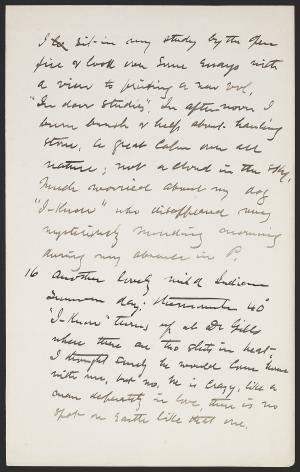 I sit in my study by the open
fire & look over some essays with
a view to printing a new vol,
"In door Studies". In afternoon I
burn brush & help about hauling
stone. A great calm over all
nature; not a cloud in the sky.
Much worried about my dog
"I-Know" who disappeared very
mysteriously Monday morning
during my absence in P.
16 Another lovely mild Indian
summer day: thermometer 60°
"I-Know" turns up at De Gills
where there are two sluts in heat.
I thought surely he would come home
with me, but no. He is crazy, like a
man desperately in love, there is no
spot on Earth like that one.